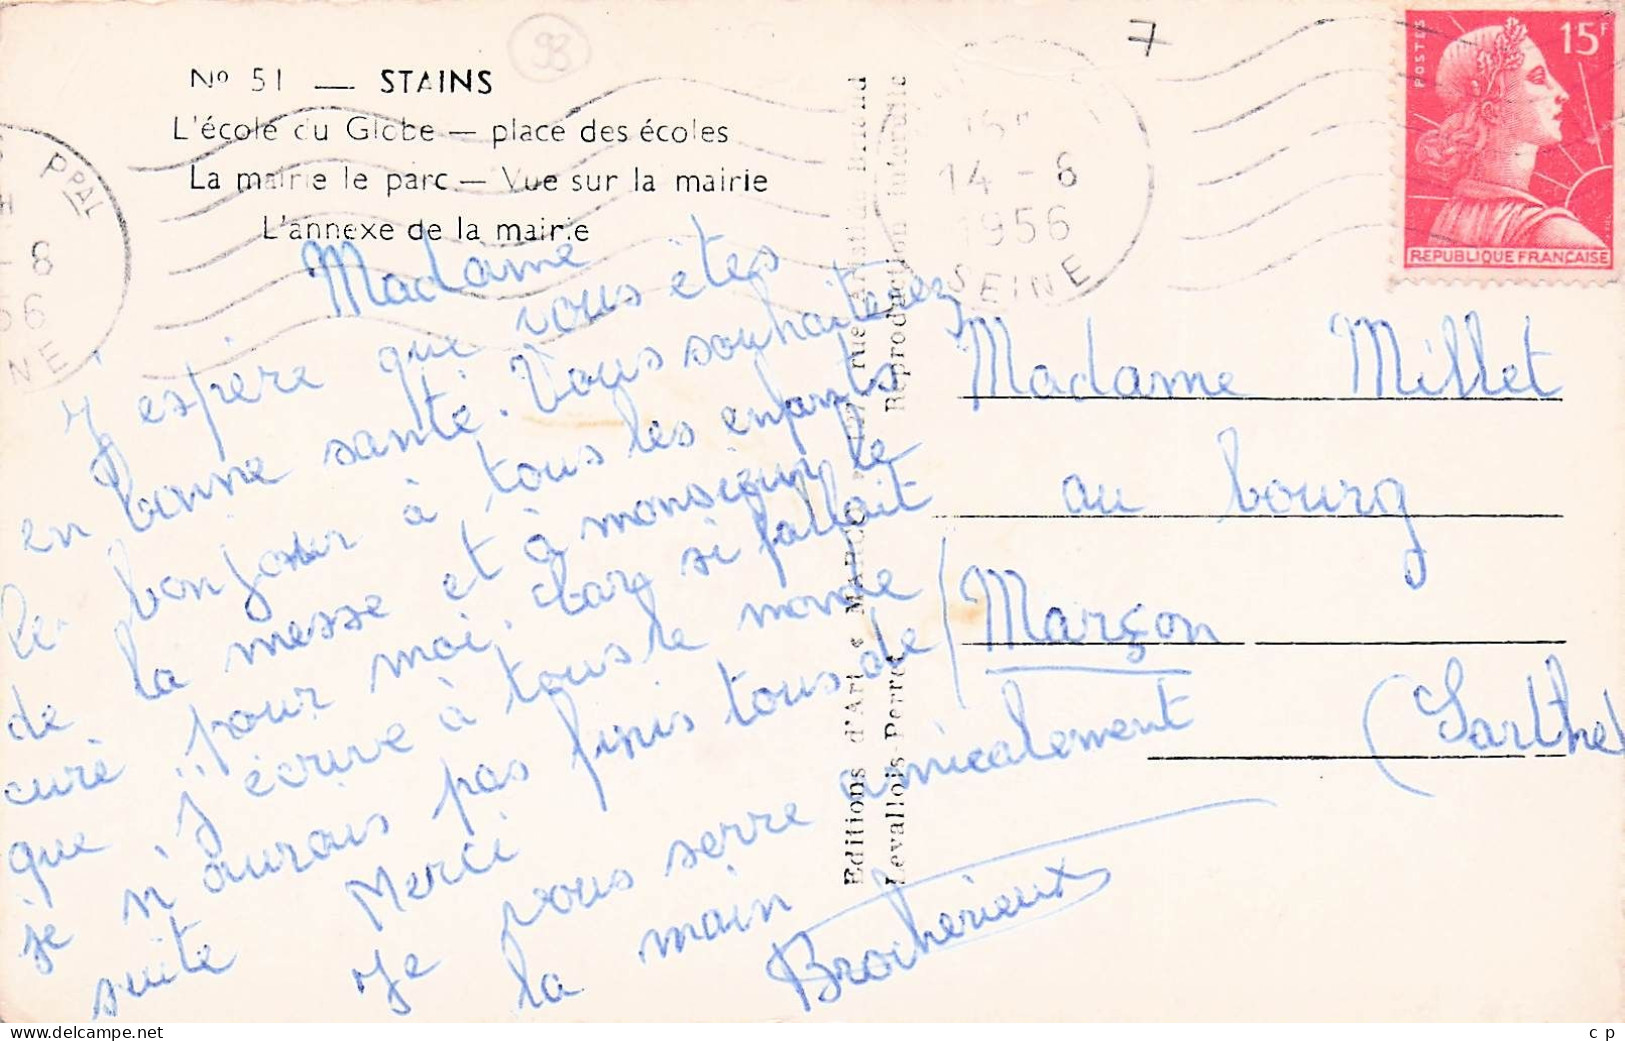 93
7
N° 51 — STAINS
L'école du Globe — place des écoles
La mairie le parc — Vue sur la mairie
L'annexe de la mairie
PPAL
- 8
56
NE
14 - 8
1956
SEINE
POSTES
15F
REPUBLIQUE FRANÇAISE
Madame
J'espère que vous êtes
en bonne santé. Vous souhaiterez
le bonjour à tous les enfants
de la messe et à monsieur le
curé pour moi. Car si fallait
que j'écrive à tous le monde
je n'aurais pas finis tous de
suite Merci
Je vous serre amicalement
la main
Brocherieux
Editions d'Art
Levallois-Perret
Reproduction Interdite
Madame Millet
au bourg
Marçon
(Sarthe
c p